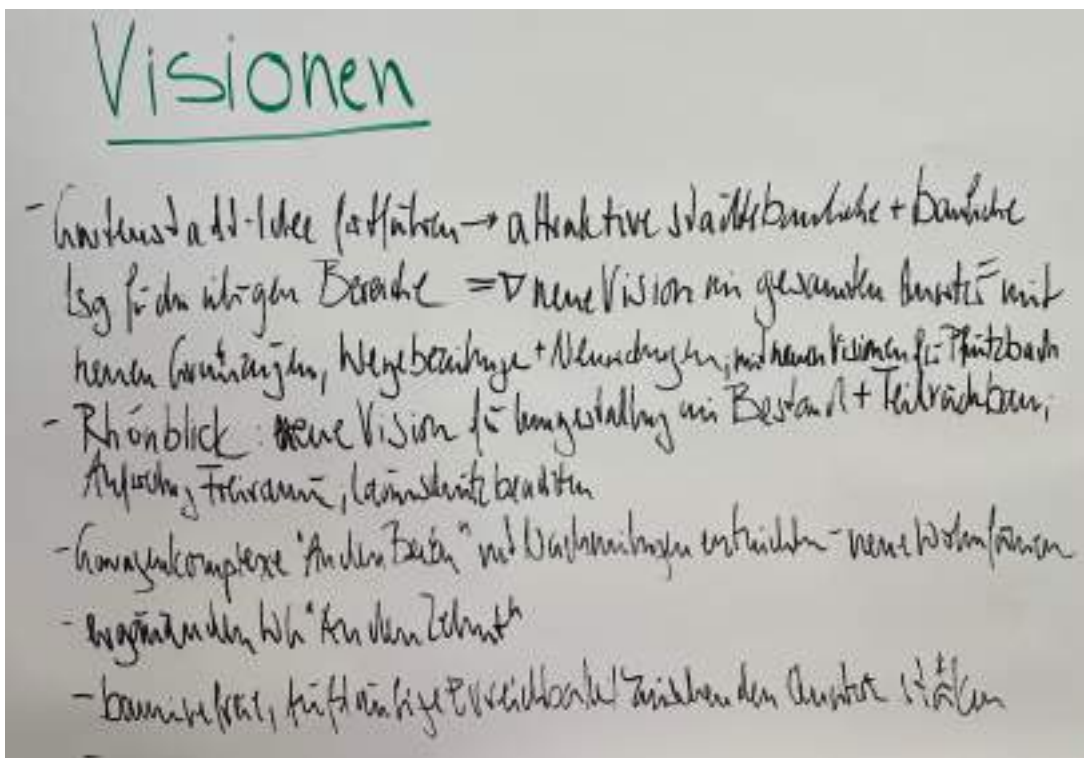 Visionen
- Gartenstadt-Idee fortführen → attraktive städtebauliche + bauliche
Lsg für den übrigen Bereiche => neue Vision im gesamten mit
neuen Grünzügen, Wegebeziehungen + mit neuen Visionen für Pfützbach
- Rhönblick: neue Vision für Umgestaltung im Bestand + Teilrückbau,
Freiraum, Lärmschutz beachten
- Garagenkomplexe "An den Beeten" mit entwickeln - neue Wohnformen
- "An den Zehnt"
- barrierefreie, fußläufige Erreichbarkeit zwischen den stärken